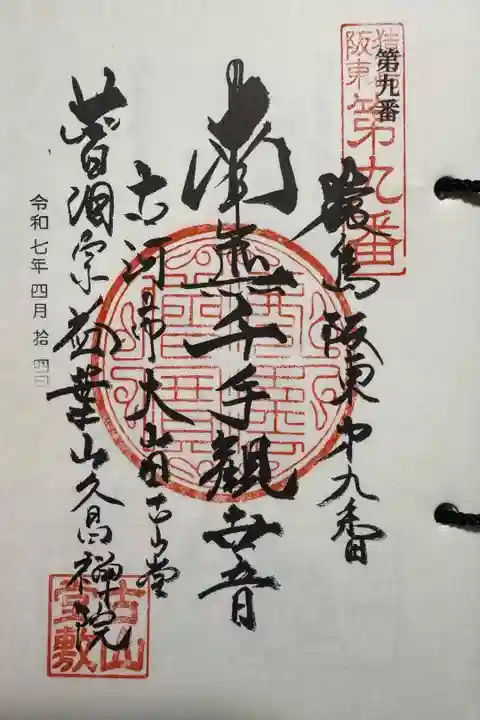 第九番
阪東
第九番
猿島阪東第九番
南無千手觀世音
古河市大山古山堂
曹洞宗葉山久昌禅院
令和七年四月拾四日
古山
堂敷